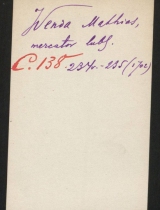 Wenda Mathias,
mercator lubl.
C. 138. 234.-235 (1702)